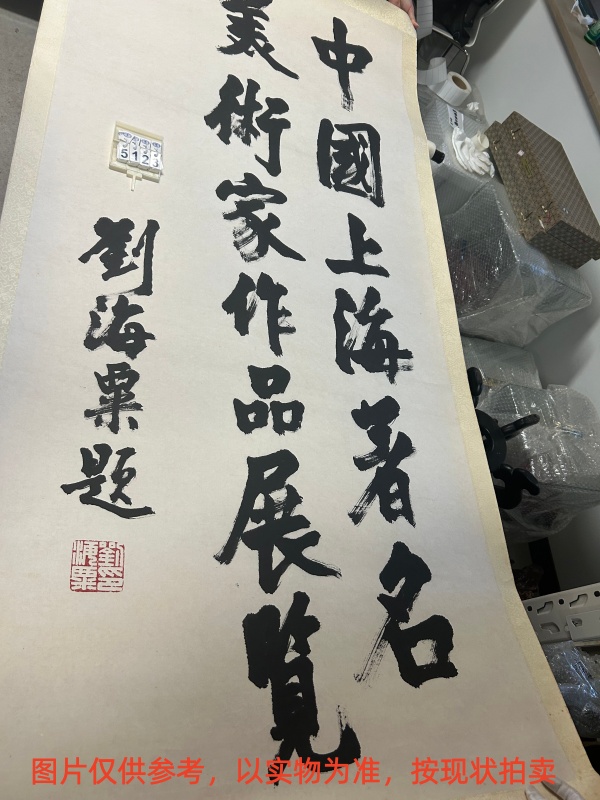 中國上海著名
美術家作品展覽
劉海粟題
劉印海粟
5123
图片仅供参考，以实物为准，按现状拍卖